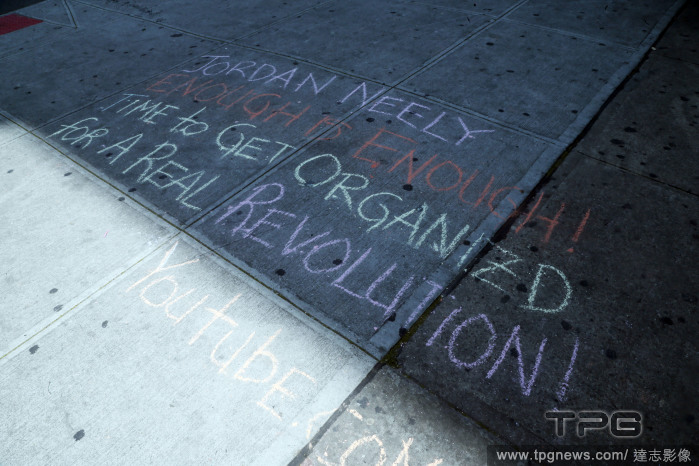 JORDAN NEELY
ENOUGH IS ENOUGH!
TIME to GET ORGANIZED
for A REAL REVOLUTION!
Youtube.Com
TPG
www.tpgnews.com/ 達志影像